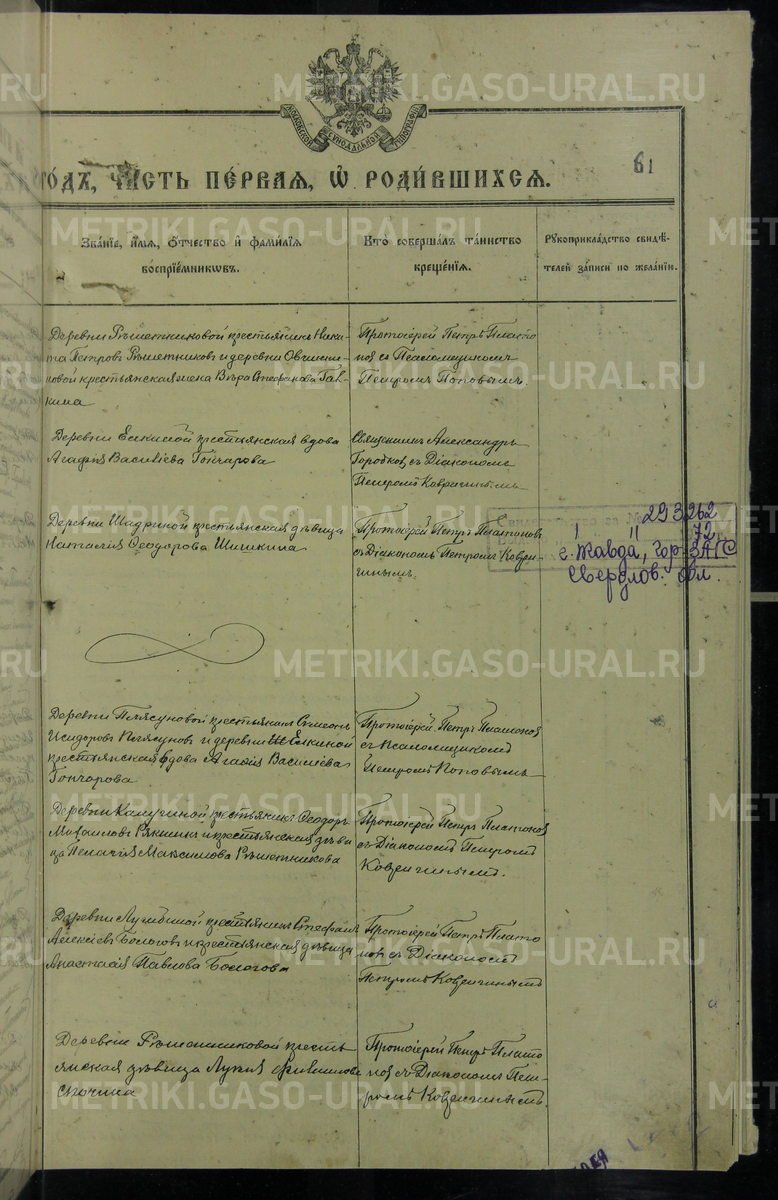 METRIKI.GASO-URAL.RU
МОСКОВСКОЙ СѴНОДАЛЬНОЙ ТИПОГРАФІИ
61
го́дъ, ча́сть пе́рвая, ѡ роди́вшихсѧ.
Зва́нїе, и́мѧ, ѻ҆́тчество и҆ фамилїѧ
воспрїе́мниковъ.
Кто̀ соверша́лъ та́инство
креще́нїѧ.
Рꙋкоприкла́дство свидѣ́-
телей за́писи по жела́нїю.
Деревни Рѣшетниковой крестьянинъ Ники-
та Петровъ Рѣшетниковъ и деревни Овчинни-
ковой крестьянская жена Вѣра Стефанова Гал-
кина
Протоіерей Петръ Плато
новъ съ Псаломщикомъ
Петромъ Поповымъ.
Деревни Елкиной крестьянская вдова
Агафія Васильева Гончарова
Священникъ Александръ
Городковъ съ Діакономъ
Петромъ Ковригинымъ
Деревни Шадриной крестьянская дѣвица
Наталія Ѳеодорова Шишкина
Протоіерей Петръ Платоновъ
съ Діакономъ Петромъ Коври-
гинымъ.
293262
72
г. Тавда, Гор. ЗАГС
Свердлов. обл.
Деревни Плясуновой крестьянинъ Сѵмеонъ
Исидоровъ Плясуновъ и деревни Елкиной
крестьянская вдова Агафія Васильева
Гончарова
Протоіерей Петръ Платоновъ
съ Псаломщикомъ
Петромъ Поповымъ
Деревни Калугиной крестьянинъ Ѳеодоръ
Михаиловъ Рякинъ и крестьянская дѣви
ца Пелагія Максимова Рѣшетникова
Протоіерей Петръ Платоновъ
съ Діакономъ Петромъ
Ковригинымъ.
Деревни крестьянинъ Стефанъ
Алексіевъ Бологовъ и крестьянская дѣвица
Анастасія Павлова Бологова
Протоіерей Петръ Плато
новъ съ Діакономъ
Петромъ Ковригинымъ
Деревни Рѣшетниковой кресть
янская дѣвица Лукія Филиппова
Протоіерей Петръ Плато
новъ съ Діакономъ Пет-
ромъ Ковригинымъ.